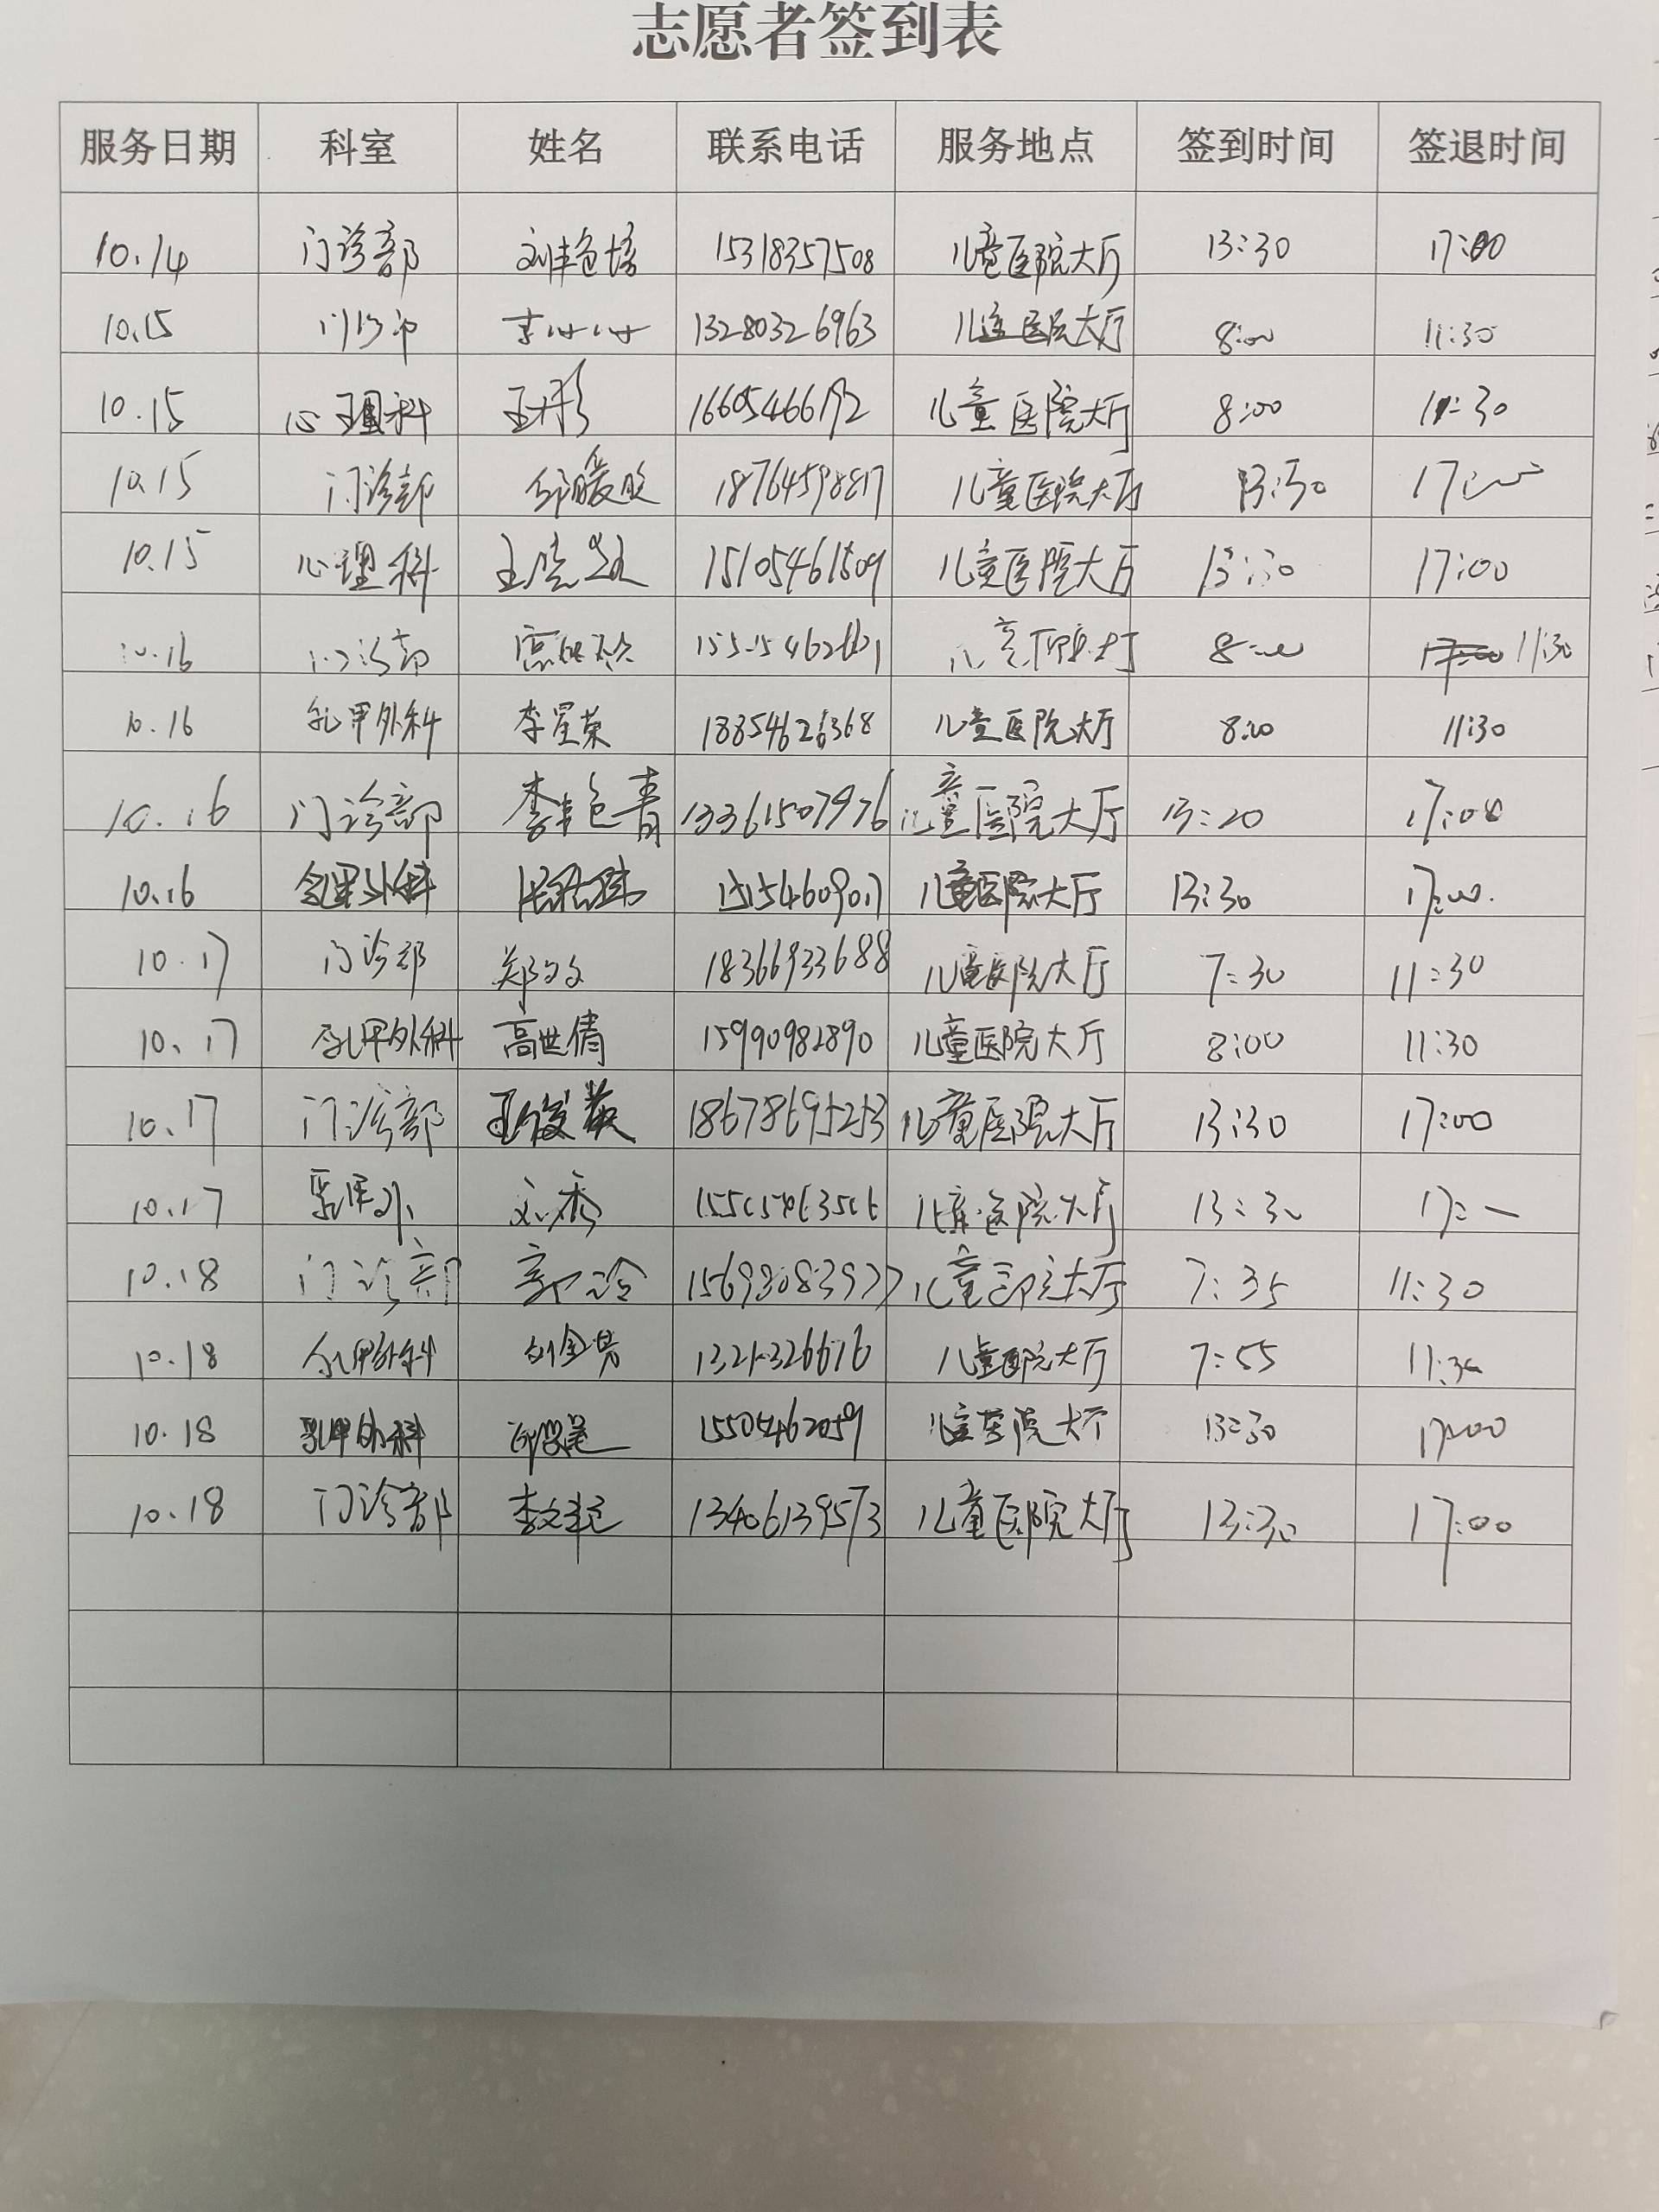 志愿者签到表
服务日期 科室 姓名 联系电话 服务地点 签到时间 签退时间
10.14 门诊部 刘艳培 15318357508 儿童医院大厅 13:30 17:00
10.15 门诊部 13280326963 儿童医院大厅 8:00 11:30
10.15 心理科 王彤 16605466192 儿童医院大厅 8:00 11:30
10.15 门诊部 18764598817 儿童医院大厅 13:30 17:00
10.15 心理科 15105461509 儿童医院大厅 13:30 17:00
10.16 门诊部 儿童医院大厅 8:00 11:30
10.16 乳甲外科 李星荣 18854626368 儿童医院大厅 8:00 11:30
10.16 门诊部 李艳青 13361507976 儿童医院大厅 13:20 17:00
10.16 乳甲外科 儿童医院大厅 13:30 17:00
10.17 门诊部 郑文文 18366933688 儿童医院大厅 7:30 11:30
10.17 乳甲外科 高世倩 15990982890 儿童医院大厅 8:00 11:30
10.17 门诊部 王俊英 18678695253 儿童医院大厅 13:30 17:00
10.17 乳甲外 刘秀 儿童医院大厅 13:30
10.18 门诊部 郭冷 15698083977 儿童医院大厅 7:35 11:30
10.18 乳甲外科 儿童医院大厅 7:55 11:30
10.18 乳甲外科 15505462059 儿童医院大厅 13:30 17:00
10.18 门诊部 13406139573 儿童医院大厅 13:30 17:00